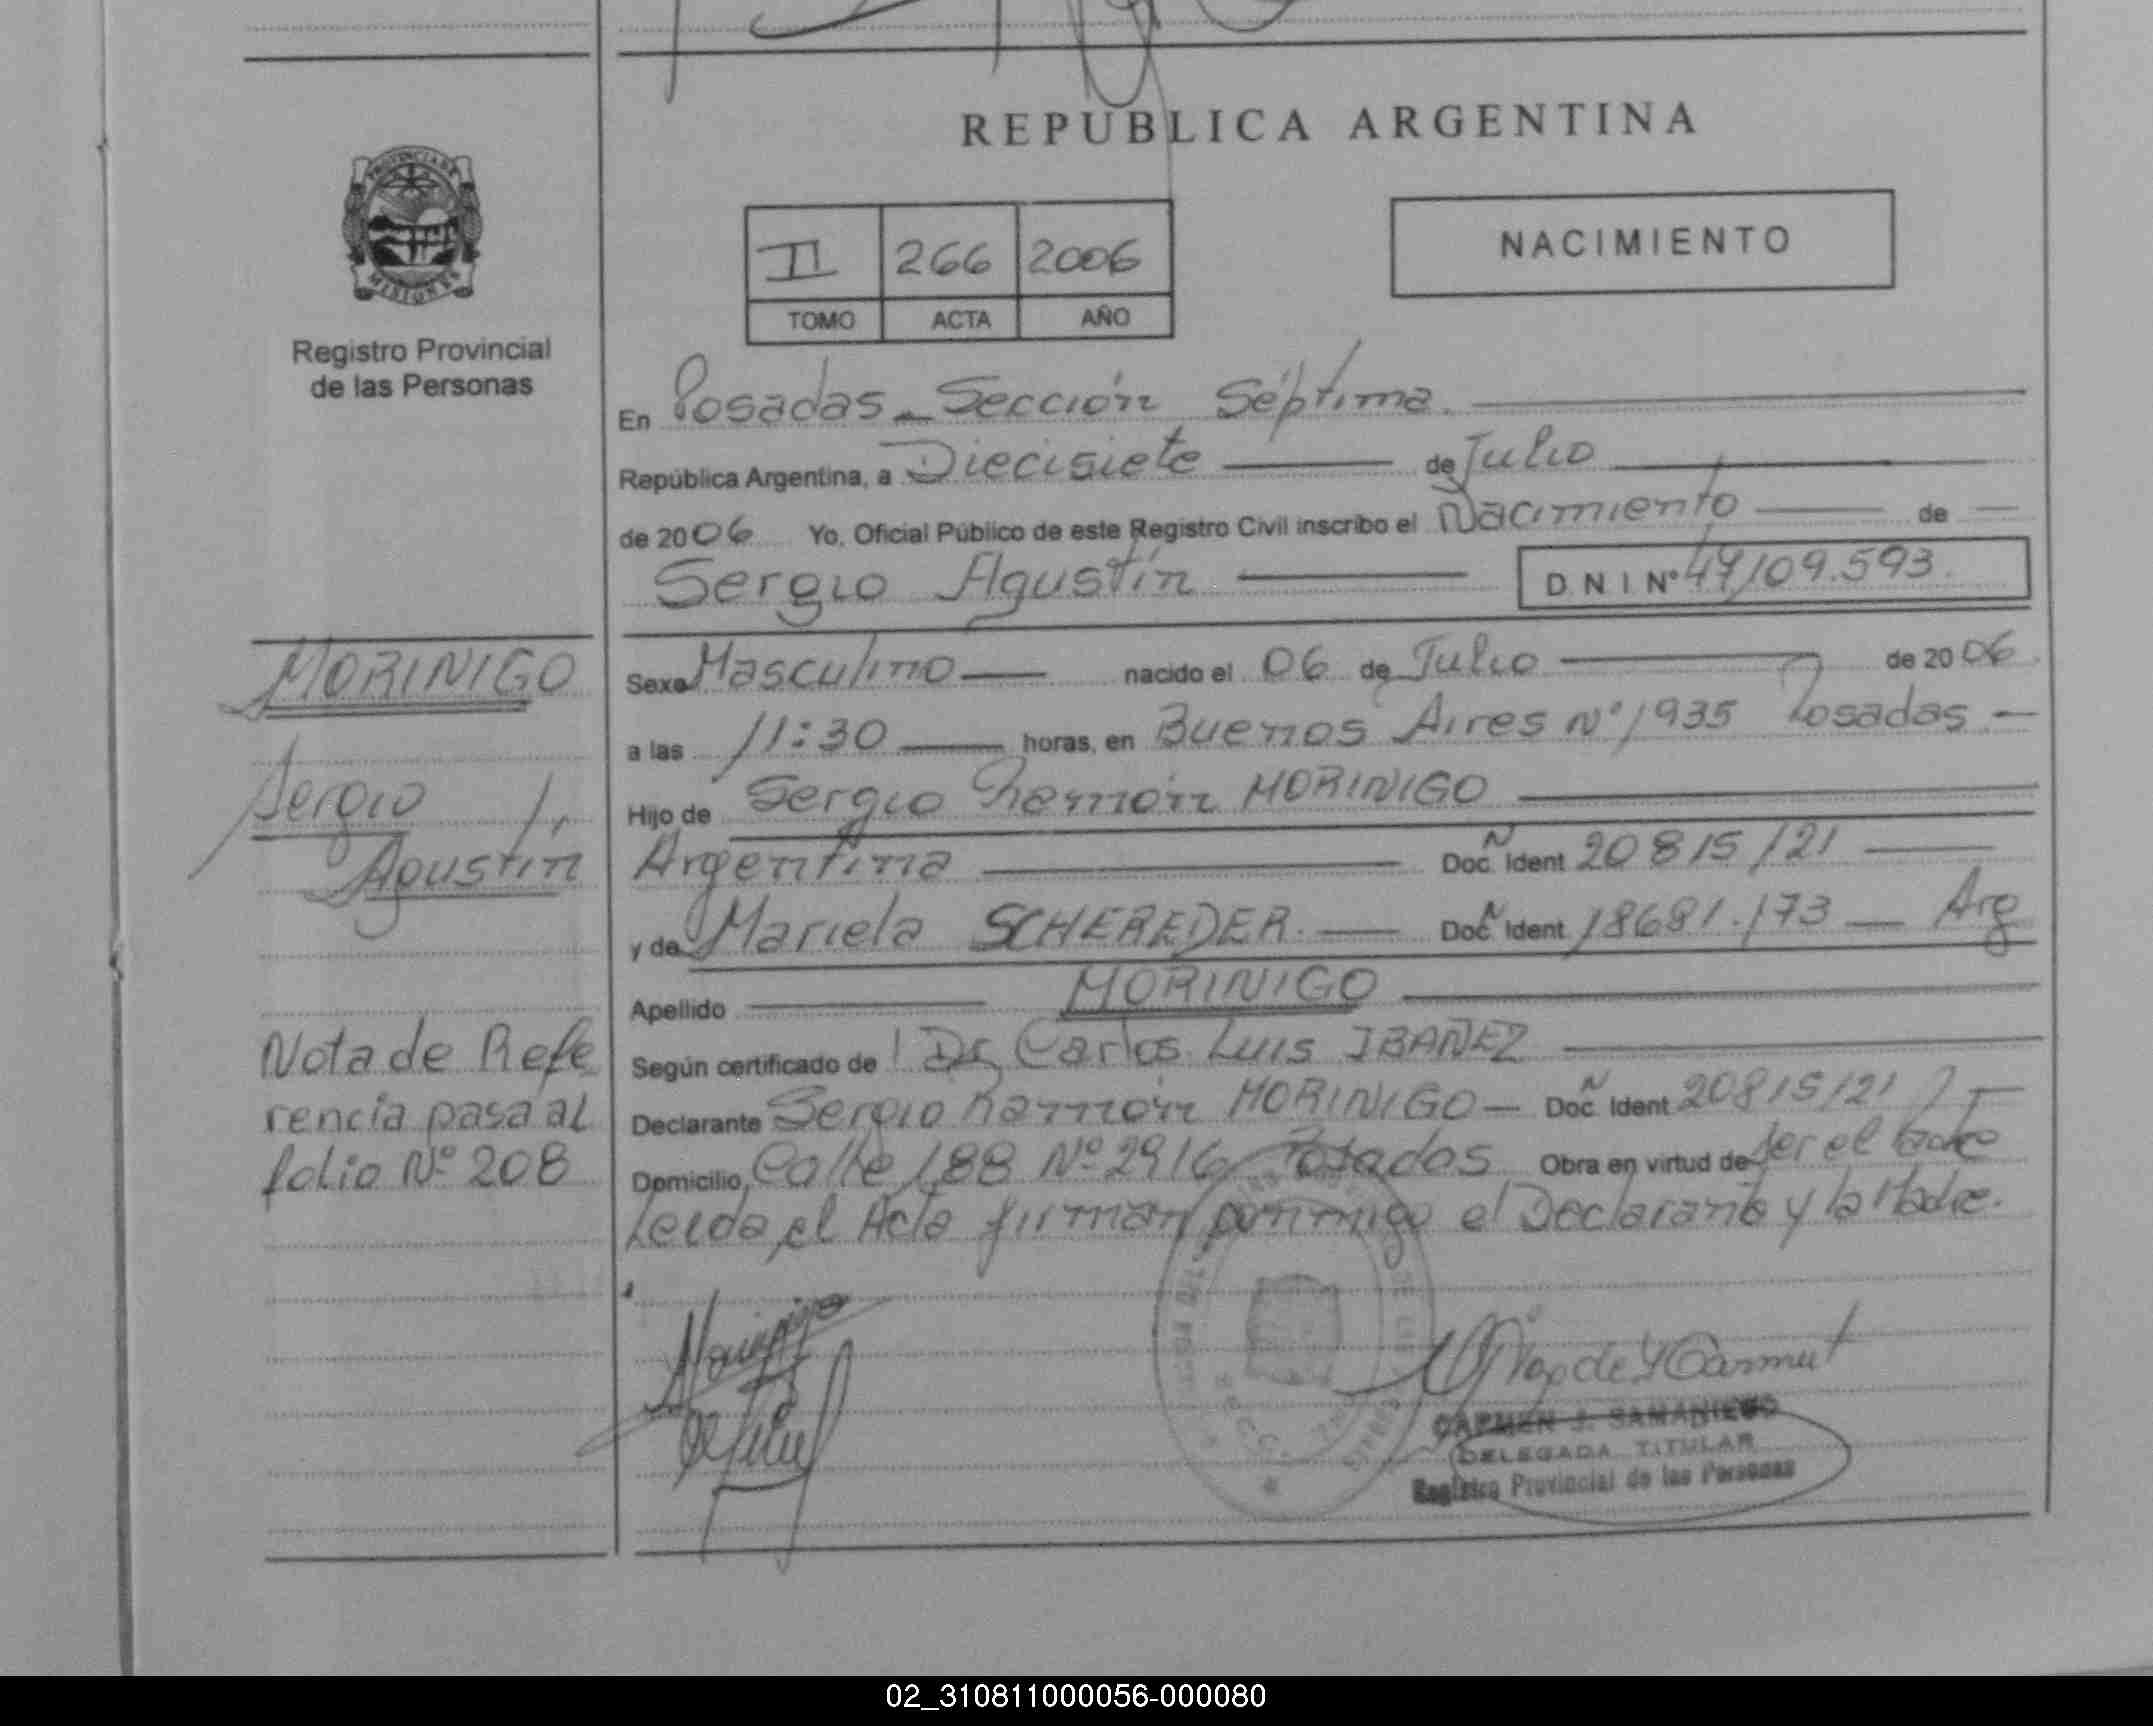 REPUBLICA ARGENTINA
PROVINCIA DE
MISIONES
Registro Provincial
de las Personas
II 266 2006
TOMO ACTA AÑO
NACIMIENTO
En Posadas - Sección Séptima.
República Argentina, a Diecisiete de Julio
de 2006 Yo, Oficial Público de este Registro Civil inscribo el Nacimiento de
Sergio Agustín D N I Nº 47109.593.
MORINIGO
Sergio
Agustín
Nota de Refe
rencia pasa al
folio Nº 208
Sexo Masculino nacido el 06 de Julio de 2006
a las 11:30 horas, en Buenos Aires Nº 1935 Posadas
Hijo de Sergio Ramón MORINIGO
Argentina Doc. Ident 20815121
y de Mariela SCHEREDER. Doc. Ident 18681.173 Arg
Apellido MORINIGO
Según certificado de Dr Carlos Luis IBAÑEZ
Declarante Sergio Ramón MORINIGO Doc. Ident 20815121
Domicilio Calle 188 Nº 2916 Posadas Obra en virtud de ser el Padre
Leída el Acta firman conmigo el Declarante y la Madre.
CARMEN J. SAMANIEGO
DELEGADA TITULAR
Registro Provincial de las Personas
02_310811000056-000080